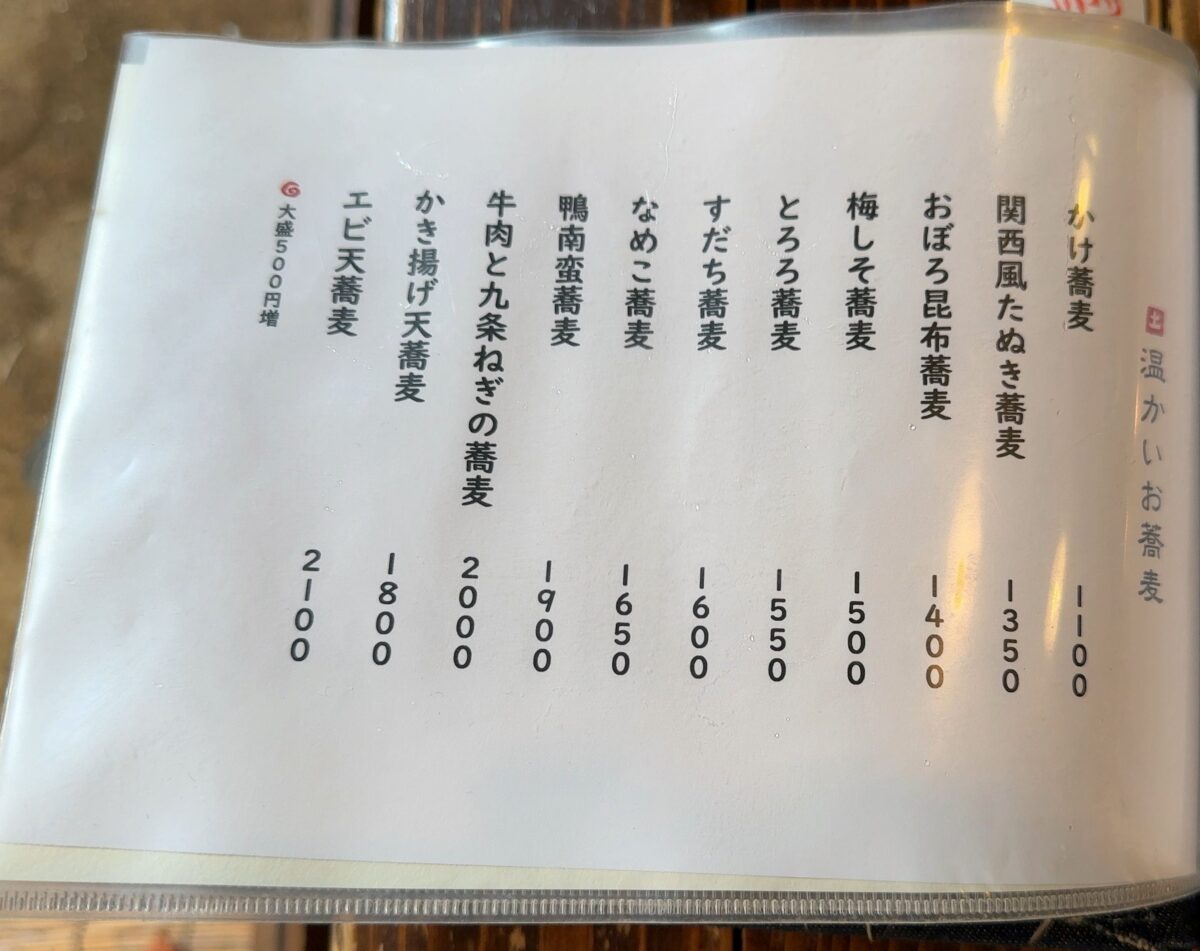 温かいお蕎麦
かけ蕎麦 1100
関西風たぬき蕎麦 1350
おぼろ昆布蕎麦 1400
梅しそ蕎麦 1500
とろろ蕎麦 1550
すだち蕎麦 1600
なめこ蕎麦 1650
鴨南蛮蕎麦 1900
牛肉と九条ねぎの蕎麦 2000
かき揚げ天蕎麦 1800
エビ天蕎麦 2100
大盛500円増